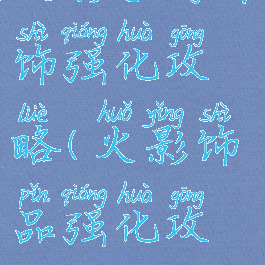 shì qiáng huà gōng
饰强化攻
lüè huǒ yǐng shì
略(火影饰
pǐn qiáng huà gōng
品强化攻